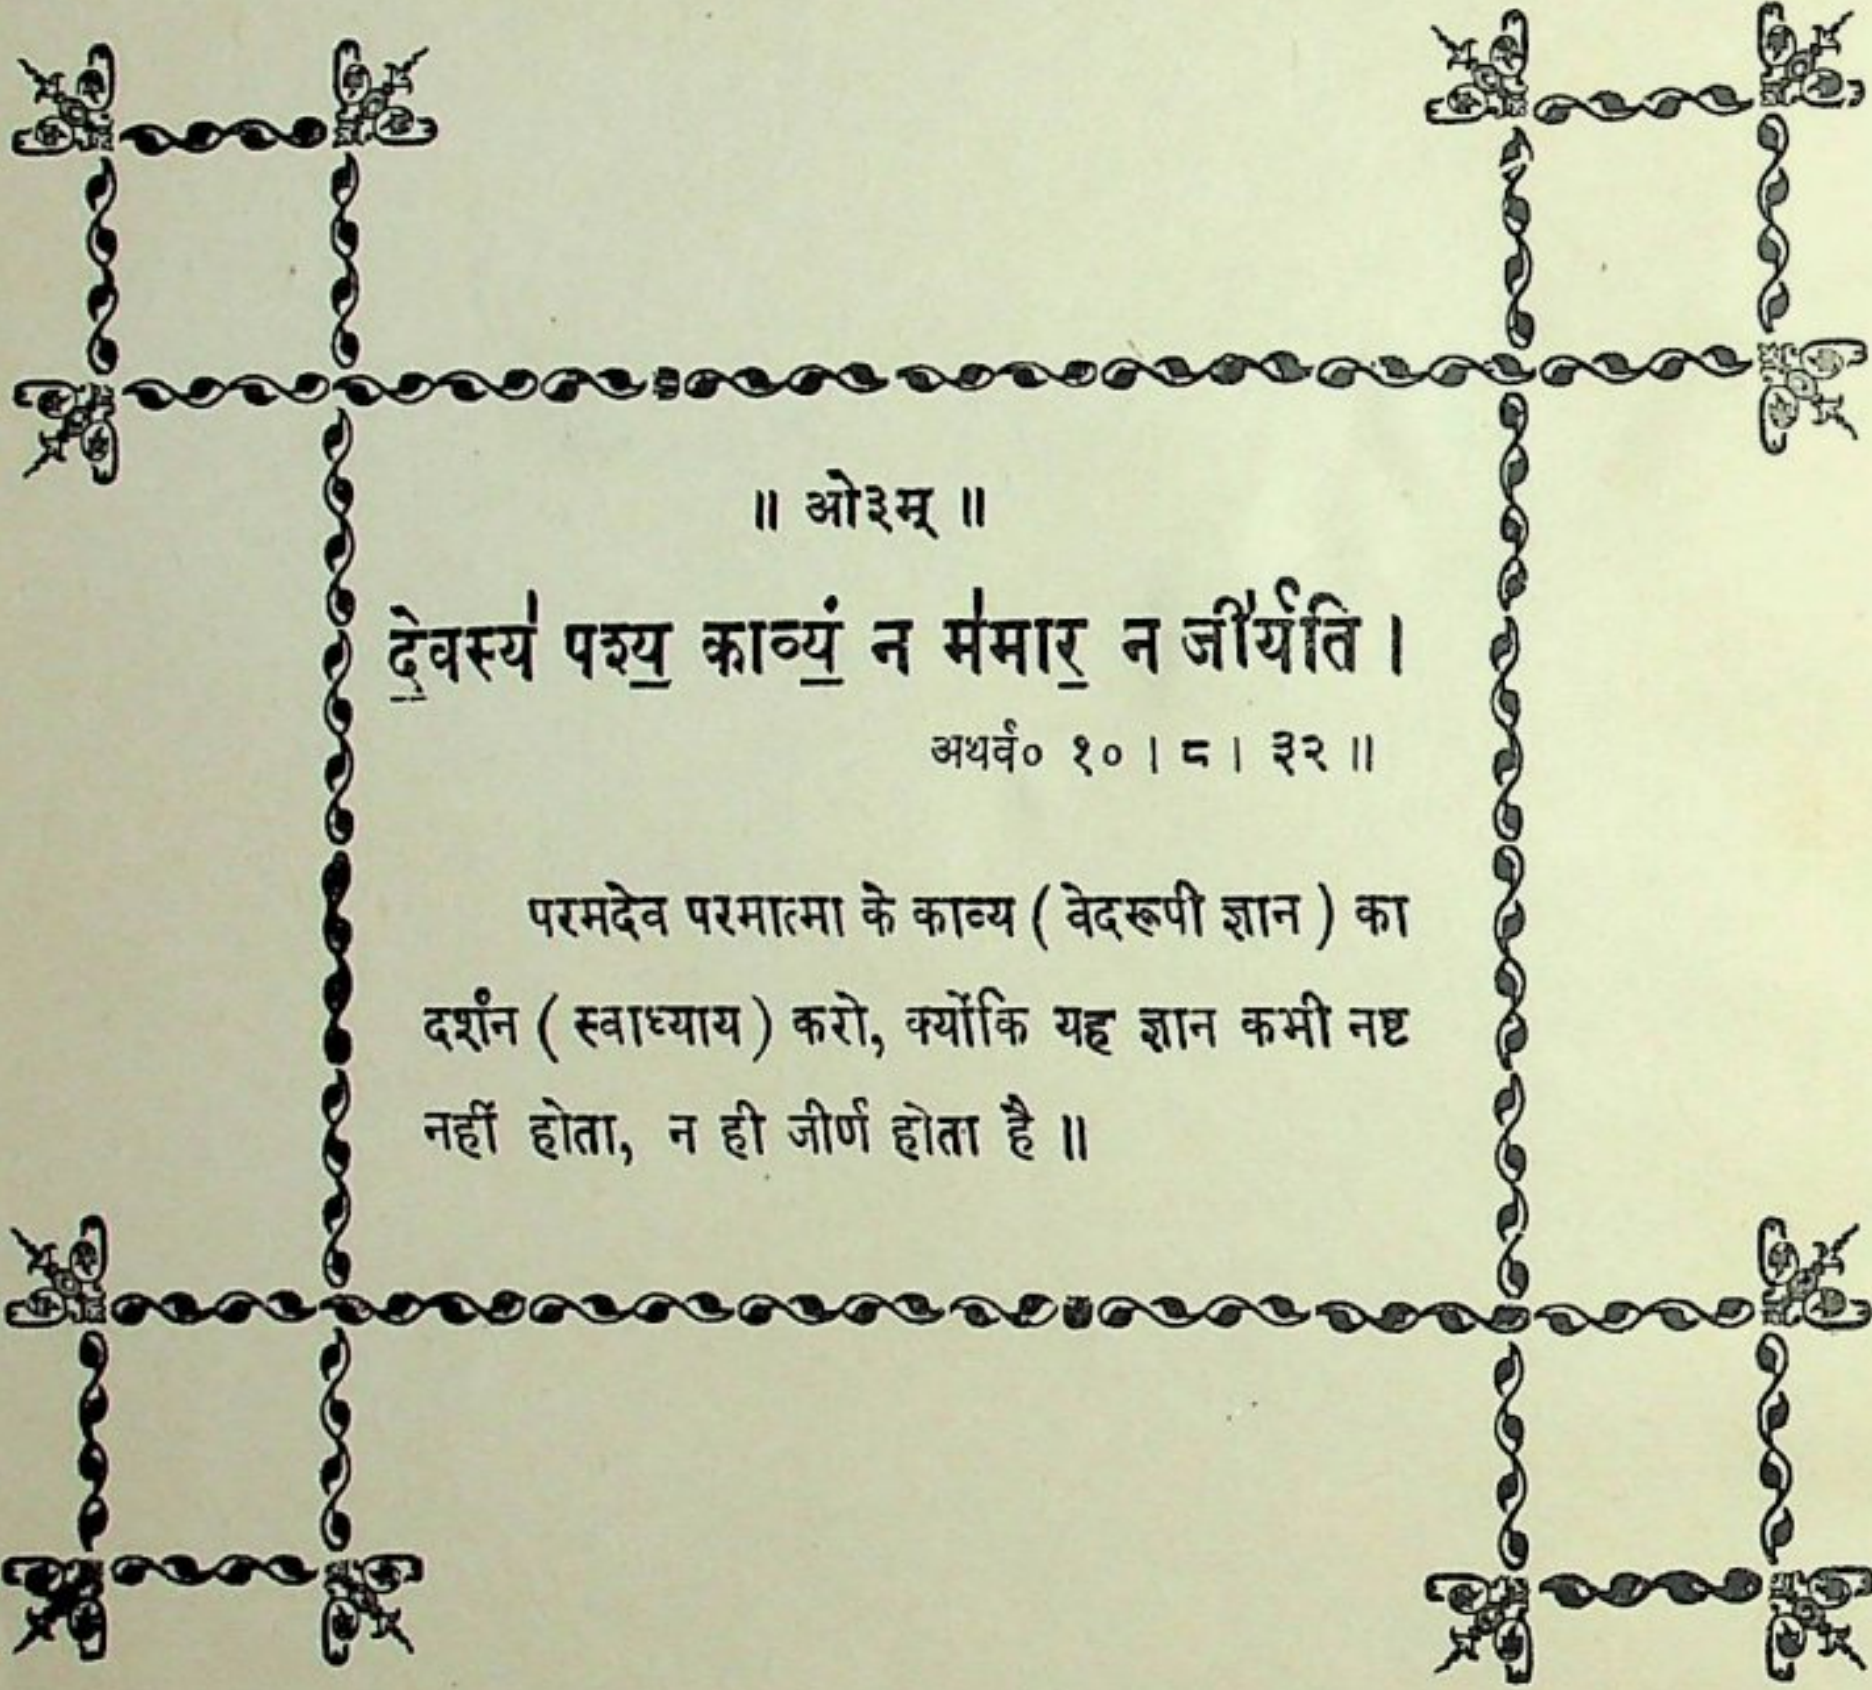 ॥ ओ३म् ॥
दे॒वस्य॑ पश्य॒ काव्यं॒ न म॑मार॒ न जी॑र्यति ।
अथर्व० १० । ८ । ३२ ॥
परमदेव परमात्मा के काव्य ( वेदरूपी ज्ञान ) का
दर्शन ( स्वाध्याय ) करो, क्योंकि यह ज्ञान कभी नष्ट
नहीं होता, न ही जीर्ण होता है ॥